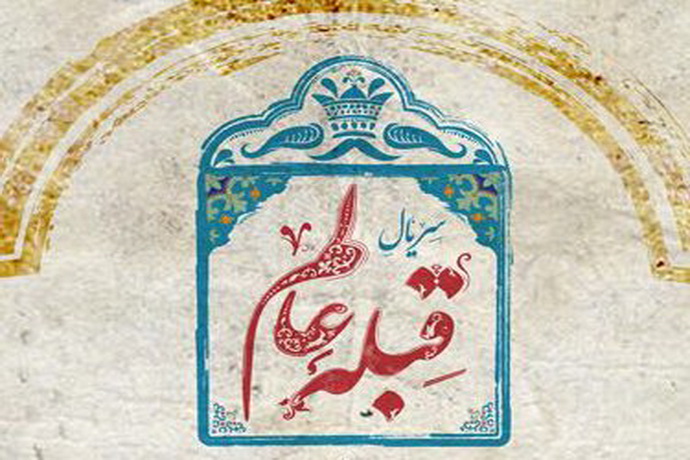 سریال
قبله عالم